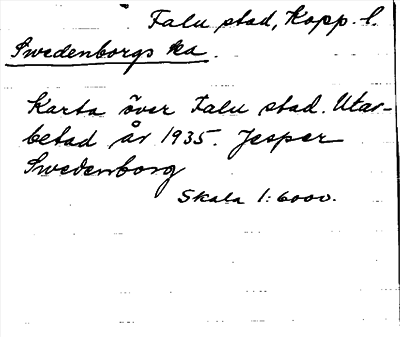 Falu stad, Kopp. l.
Swedenborgs ka.
Karta över Falu stad. Utar-
betad år 1935. Jesper
Swedenborg
Skala 1:6000.